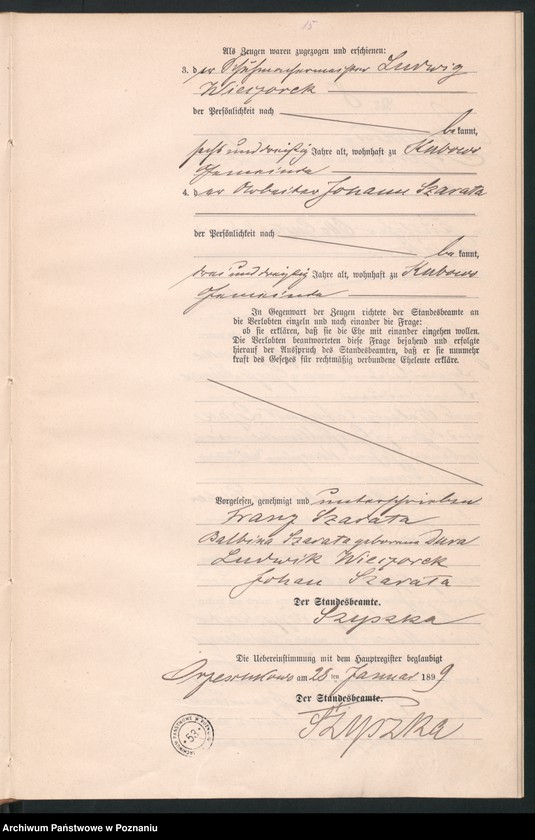 15
Als Zeugen waren zugezogen und erschienen:
3. der Schuhmachermeister Ludwig
Wieczorek
der Persönlichkeit nach
bekannt,
sechs und dreißig Jahre alt, wohnhaft zu Kubowo
Gemeinde
4. der Arbeiter Johann Szarata
der Persönlichkeit nach
bekannt,
drei und dreißig Jahre alt, wohnhaft zu Kubowo
Gemeinde
In Gegenwart der Zeugen richtete der Standesbeamte an
die Verlobten einzeln und nach einander die Frage:
ob sie erklären, daß sie die Ehe mit einander eingehen wollen.
Die Verlobten beantworteten diese Frage bejahend und erfolgte
hierauf der Ausspruch des Standesbeamten, daß er sie nunmehr
kraft des Gesetzes für rechtmäßig verbundene Eheleute erkläre.
Vorgelesen, genehmigt und unterschrieben
Franz Szarata
Balbina Szarata geborene Dura
Ludwik Wieczorek
Johan Szarata
Der Standesbeamte.
Szyszka
Die Uebereinstimmung mit dem Hauptregister beglaubigt
am 28 ten Januar 1899
Der Standesbeamte.
Szyszka
53
Archiwum Państwowe w Poznaniu